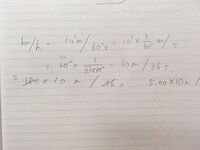 km/h = 10³m / 60²s = 10³ × 1/60² m/s
= 10³ × 1/60×60 = 10 m / 36 s
5 180 × 10 m / 36 s 5.00×10 m /